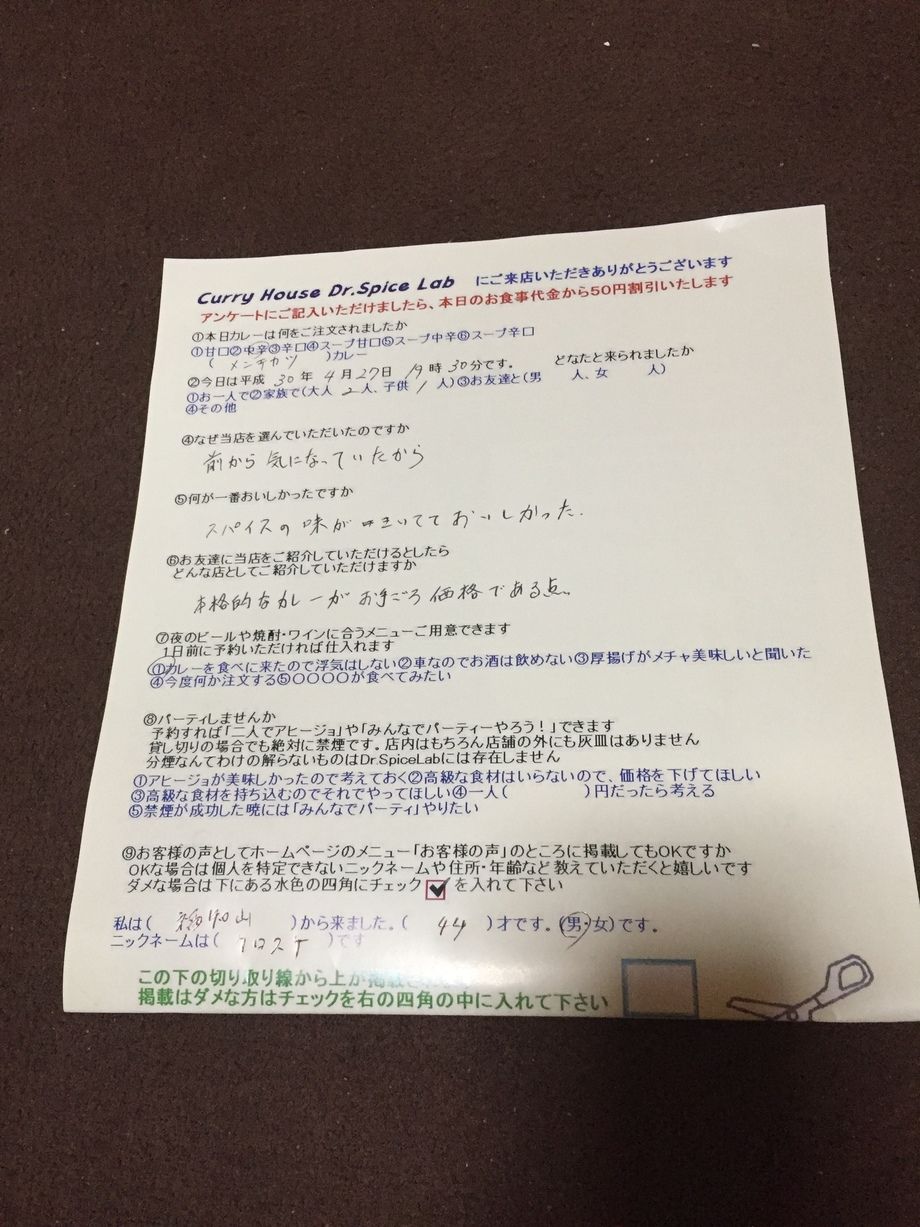 Curry House Dr.Spice Lab にご来店いただきありがとうございます
アンケートにご記入いただけましたら、本日のお食事代金から50円割引いたします
①本日カレーは何をご注文されましたか
①甘口②中辛③辛口④スープ甘口⑤スープ中辛⑥スープ辛口
( メンチカツ )カレー
②今日は平成 30 年 4 月 27 日 19 時 30 分です。 どなたと来られましたか
①お一人で②家族で(大人 2 人、子供 1 人)③お友達と(男 人、女 人)
④その他
④なぜ当店を選んでいただいたのですか
前から気になっていたから
⑤何が一番おいしかったですか
スパイスの味がきいてておいしかった.
⑥お友達に当店をご紹介していただけるとしたら
どんな店としてご紹介していただけますか
本格的なカレーがお手ごろ価格である点。
⑦夜のビールや焼酎・ワインに合うメニューご用意できます
1日前に予約いただければ仕入れます
①カレーを食べに来たので浮気はしない②車なのでお酒は飲めない③厚揚げがメチャ美味しいと聞いた
④今度何か注文する⑤〇〇〇〇が食べてみたい
⑧パーティしませんか
予約すれば「二人でアヒージョ」や「みんなでパーティーやろう!」できます
貸し切りの場合でも絶対に禁煙です。店内はもちろん店舗の外にも灰皿はありません
分煙なんてわけの解らないものはDr.SpiceLabには存在しません
①アヒージョが美味しかったので考えておく②高級な食材はいらないので、価格を下げてほしい
③高級な食材を持ち込むのでそれでやってほしい④一人( )円だったら考える
⑤禁煙が成功した暁には「みんなでパーティ」やりたい
⑨お客様の声としてホームページのメニュー「お客様の声」のところに掲載してもOKですか
OKな場合は個人を特定できないニックネームや住所・年齢など教えていただくと嬉しいです
ダメな場合は下にある水色の四角にチェック☑を入れて下さい
私は( 福知山 )から来ました。( 44 )才です。(男・女)です。
ニックネームは( )です
この下の切り取り線から上が掲載
掲載はダメな方はチェックを右の四角の中に入れて下さい